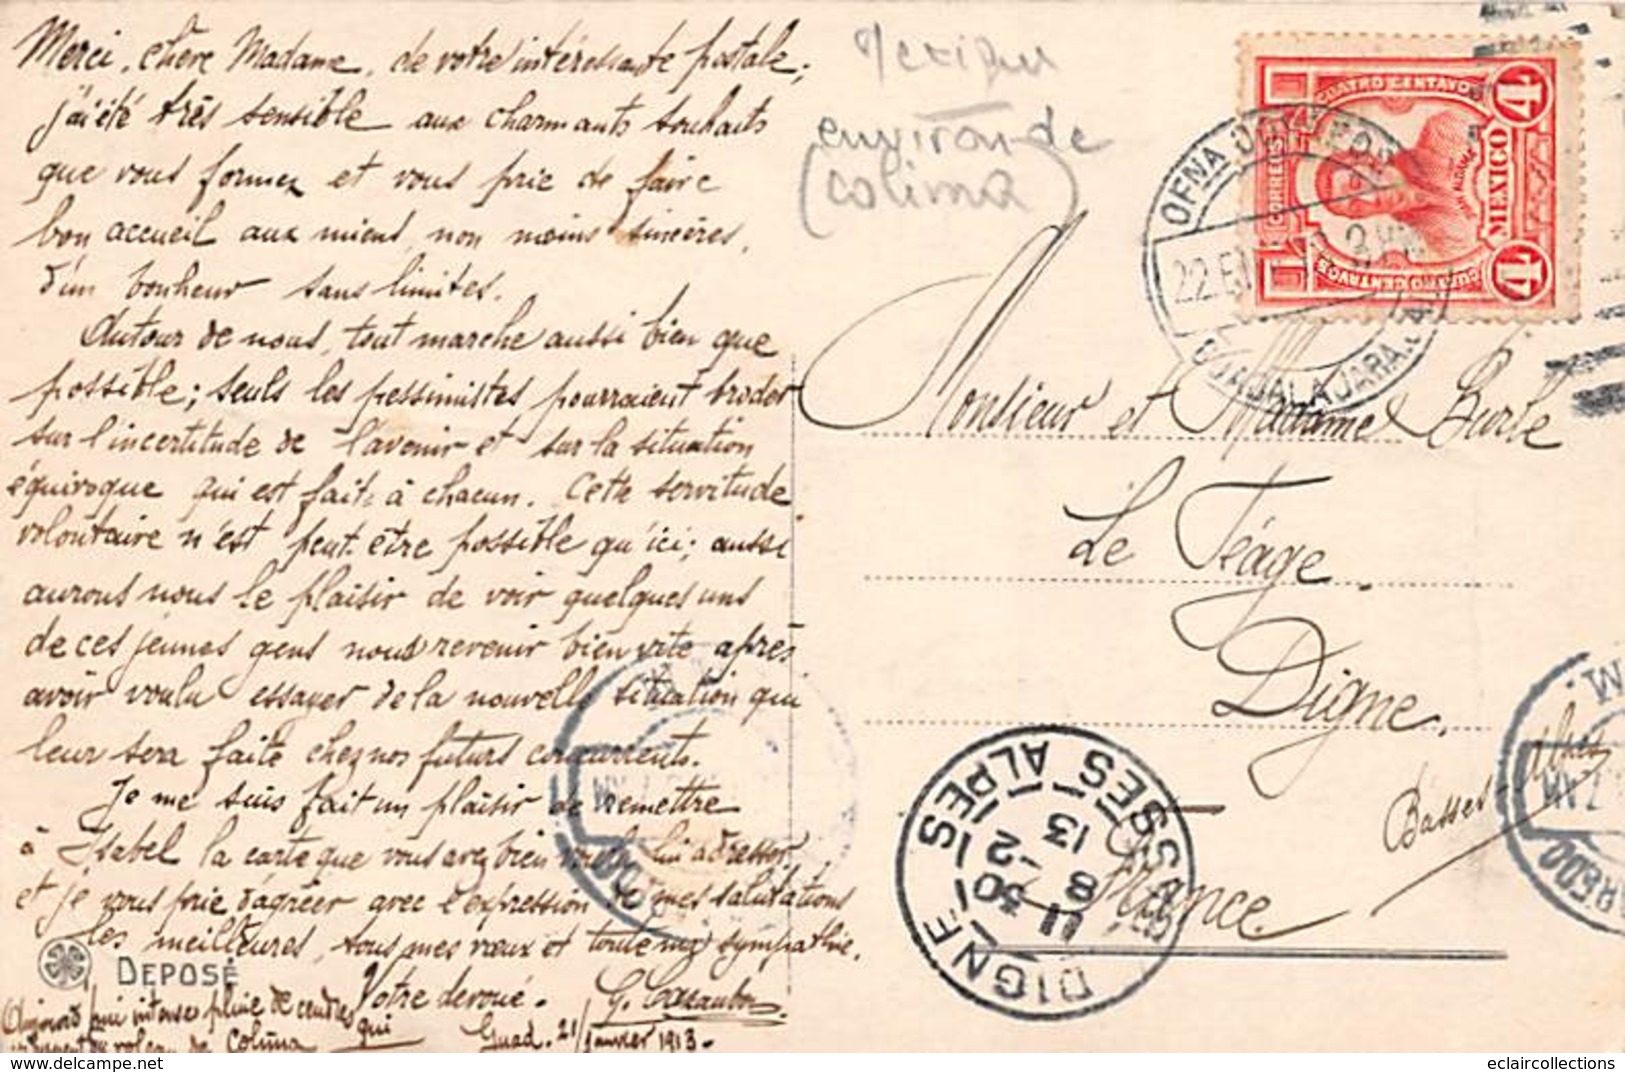 Merci, chère Madame, de votre intéressante postale;
j'ai été très sensible aux charmants souhaits
que vous formez et vous prie de faire
bon accueil aux miens, non moins sincères,
d'un bonheur sans limites.
Autour de nous, tout marche aussi bien que
possible; seuls les pessimistes pourraient broder
sur l'incertitude de l'avenir et sur la situation
équivoque qui est faite à chacun. Cette servitude
volontaire n'est peut-être possible qu'ici; aussi
aurons nous le plaisir de voir quelques uns
de ces jeunes gens nous revenir bien vite après
avoir voulu essayer de la nouvelle situation qui
leur sera faite chez nos futurs concurrents.
Je me suis fait un plaisir de remettre
à Isabel la carte que vous avez bien voulu lui adresser
et je vous prie d'agréer avec l'expression de mes salutations
les meilleures, tous mes vœux et toute ma sympathie.
Votre dévoué. G. Cazaubon
Guad. 21/janvier 1913-
pluie de cendres qui
volcan de Colima
DEPOSÉ
Mexique
environ de
(Colima)
CUATRO CENTAVOS
4 MEXICO 4
CORREOS
CUATRO CENTAVOS
OFNA
22 EN
GUADALAJARA. JAL
Monsieur et Madame Burle
Le Téage.
Digne.
Basses-Alpes
France.
DIGNE
BASSES ALPES
11 30
8 - 2
13
AREDO
eclaircollections